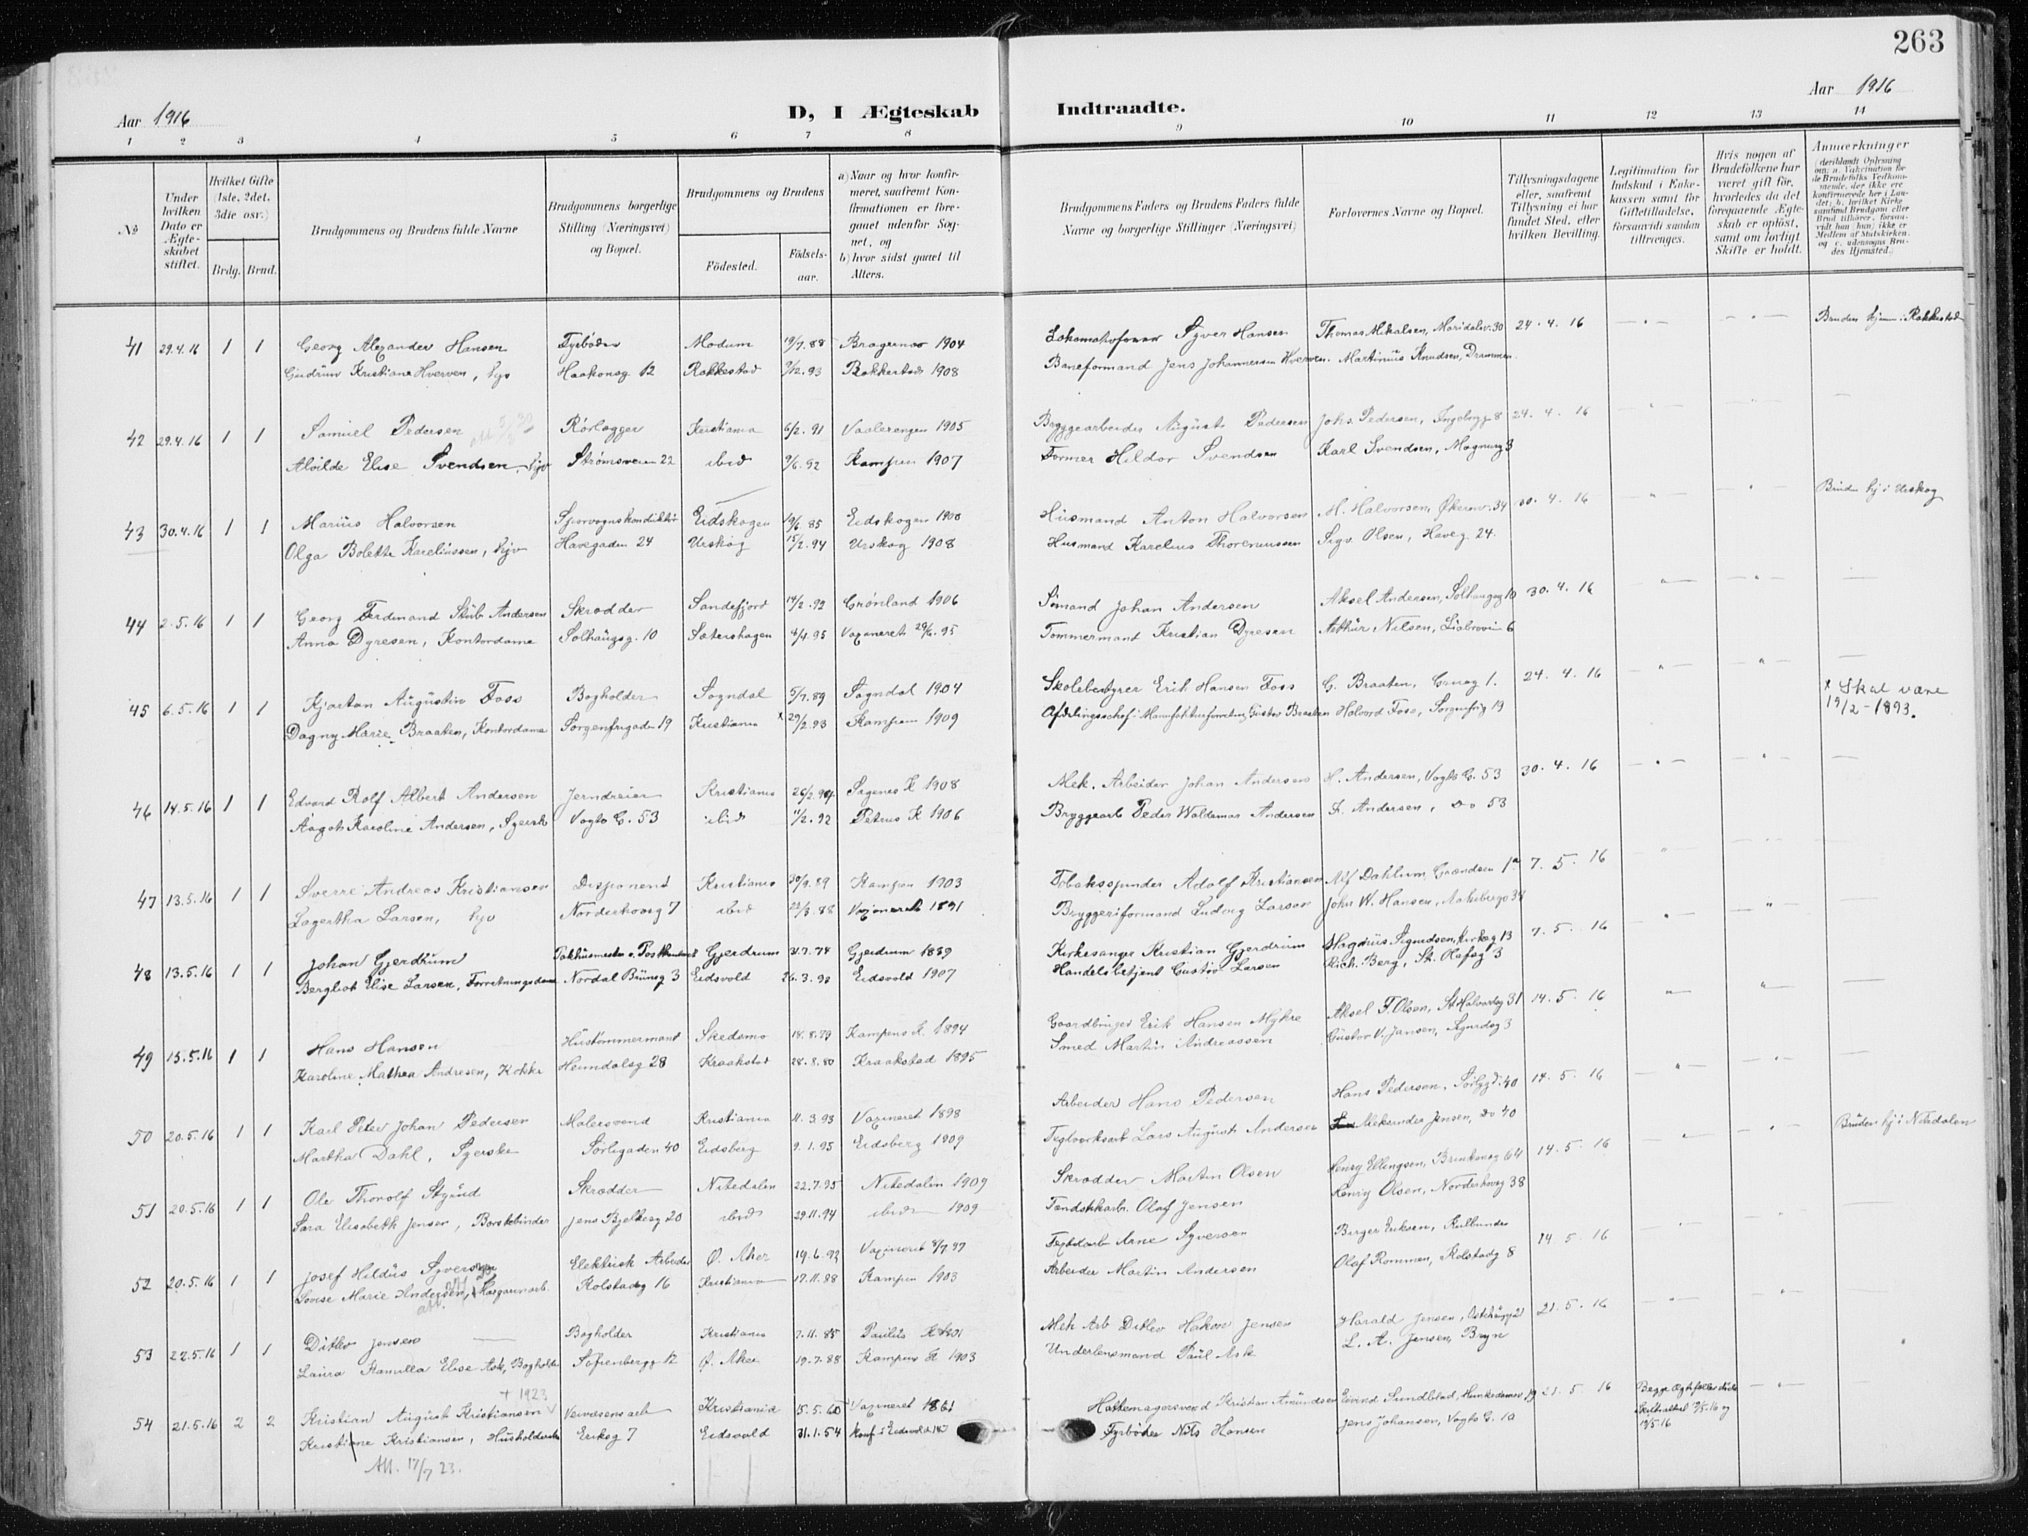 263
Aar 1916
D, I Ægteskab Indtraadte.
Aar 1916
1 2 3 4 5 6 7 8 9 10 11 12 13 14
No
Under hvilken Dato er Ægteskabet stiftet.
Hvilket Gifte (1ste, 2det, 3die osv.)
Brdg. Brud.
Brudgommens og Brudens fulde Navne
Brudgommens borgerlige Stilling (Næringsvei) og Bopæl.
Brudgommens og Brudens
Fødested. Fødselsaar.
a) Naar og hvor konfirmeret, saafremt Konfirmationen er foregaaet udenfor Sognet, og
b) hvor sidst gaaet til Alters.
Brudgommens Faders og Brudens Faders fulde Navne og borgerlige Stillinger (Næringsvei)
Forlovernes Navne og Bopæl.
Tillysningsdagene eller, saafremt Tillysning ei har fundet Sted, efter hvilken Bevilling.
Legitimation for Indskud i Enkekassen samt for Giftetilladelse, forsaavidt saadan tiltrænges.
Hvis nogen af Brudefolkene har været gift før, hvorledes da det foregaaende Ægteskab er opløst, samt om lovligt Skifte er holdt.
Anmerkninger
41 29.4.16 1 1 Georg Alexander Hansen Fyrbøder Modum 19/7.88 Bragernes 1904 Lokomotivfører Syver Hansen Thomas Mikalsen, Maridalsv. 30 24.4.16 Bruden hjem. i Rakkestad
Gudrun Kristiane Hverven, hjv Haakonsg. 12 Rakkestad 7/12.93 Rakkestad 1908 Baneformand Jens Johannessen Hverven. Martinius Knudsen, Drammen
42 29.4.16 1 1 Samuel Pedersen Rørlægger Kristiania 6/2.91 Vaalerengen 1905 Bryggearbeider August Pedersen Johs. Pedersen, Ingeborgg 8 24.4.16
Alvilde Elise Svendsen, hjv Strømsveien 22 ibid 9/6.92 Kampen 1907 Former Hildor Svendsen Karl Svendsen, Magnusg 3
43 30.4.16 1 1 Marius Halvorsen Sporvognskonduktør Eidskogen 19/6.85 Eidskogen 1900 Husmand Anton Halvorsen H. Halvorsen, Økernv. 34 30.4.16 Bruden hj i Urskog
Olga Bolette Kareliussen, hjv Havegaden 24 Urskog 15/2.94 Urskog 1908 Husmand Karelius Thoreniussen Sigv. Olsen, Haveg. 24.
44 2.5.16 1 1 Georg Ferdinand Skúb Andersen Skrædder Sandefjord 14/2.92 Grønland 1906 Sømand Johan Andersen Aksel Andersen, Solhaugsg 10 30.4.16
Anna Dyresen, Kontordame Solhaugsg. 10 Sætershagen 4/4.95 Vaxineret 29/6.95 Tømmermand Kristian Dyresen Arthur Nilsen, Liabrovei 6
45 6.5.16 1 1 Kjartan Augustin Foss Bogholder Sogndal 5/7.89 Sogndal 1904 Skolebestyrer Erik Hansen Foss G. Braaten, 1. 24.4.16 x Skal være
Dagny Marie Braaten, Kontordame Sorgenfrigaden 19 Kristiania x 29/2.93 Kampen 1909 Afdelingschef i Manufakturforretn. Gustav Braaten Halvord Foss, Sorgenfrig 13 19/2 - 1893.
46 14.5.16 1 1 Edvard Rolf Albert Andersen Jerndreier Kristiania 26/2.94 Sagenes K 1908 Mek. Arbeider Johan Andersen H. Andersen, Vogts G. 53 30.4.16
Aagot Karoline Andersen, Syerske Vogts G. 53 ibid 11/2.92 Petrus K 1906 Bryggearb Peder Waldemar Andersen F. Andersen, do 53
47 13.5.16 1 1 Sverre Andreas Kristiansen Disponent Kristiania 30/9.89 Kampen 1903 Tobaksspinder Adolf Kristiansen Alf Dahlum, Grændsen 1a 7.5.16
Lagertha Larsen, hjv Norderhovsg 7 ibid 22/3.88 Vaxineret 1891 Bryggeriformand Ludvig Larsen John W. Hansen, 34
48 13.5.16 1 1 Johan Gjerdrum Pakhusmester v. Posthuset Gjerdrum 31.7.74 Gjerdrum 1889 Kirkesanger Kristian Gjerdrum Magnus Sigurdsen, Kirkeg 13 7.5.16
Bergliot Elise Larsen, Forretningsdame Nordal Brunsg 3 Eidsvold 26.3.92 Eidsvold 1907 Handelsbetjent Gustav Larsen Rich. Berg, St. Olafsg 3
49 13.5.16 1 1 Hans Hansen Hustømmermand Skedsmo 18.8.79 Kampens K. 1894 Gaardbruger Erik Hansen Myhre Aksel F. Olsen, St Halvardsg 31 14.5.16
Karoline Mathea Andresen, Kokke Heimdalsg 28 Kraakstad 28.8.80 Kraakstad 1895 Smed Martin Andreassen Gustav V. Jansen, Sigurdsg 3
50 20.5.16 1 1 Karl Peter Johan Pedersen Malersvend Kristiania 11.3.93 Vaxineret 1898 Arbeider Hans Pedersen Hans Pedersen, Sørligd. 40 14.5.16
Martha Dahl, Syerske Sørligaden 40 Eidsberg 9.1.95 Eidsberg 1909 Teglverksarb Lars August Andersen Aleksander Jensen, do 40 Bruden hj i Nitedalen
51 20.5.16 1 1 Ole Thorolf Stgund Skrædder Nitedalen 22.7.95 Nitedalen 1909 Skrædder Martin Olsen Henry Ellingsen, Brinkensg 64 14.5.16
Sara Elisabeth Jensen, Børstebinder Jens Bjelkesg 20 ibid 29.11.94 ibid 1909 Tændstikarb. Olaf Jensen Henry Olsen, Norderhovsg 38
52 20.5.16 1 1 Josef Hildus Syversen Elektrisk Arbeider Ø. Aker 19.6.92 Vaxineret 8/7 97 Teglverksarb Arne Syversen Birger Eriksen, Kulbunden 14.5.16
Lovise Marie Andersen, Margarinarb. Rolstadsg 16 Kristiania 17.11.88 Kampen 1903 Arbeider Martin Andersen Olaf Rommen, Rolstadg 8
53 22.5.16 1 1 Ditlev Jensen Bogholder Kristiania 7.11.85 Paulus K 1901 Mek Arb Ditlev Hakon Jensen Harald Jensen, 21.5.16
Laura Kamilla Elise Ask, Bogholder Sofienbergg 12 Ø. Aker 19.7.88 Kampens K 1903 Underlensmand Paul Ask L. A. Jensen, Bryn
+ 1923
54 21.5.16 2 2 Kristian August Kristiansen Veivæsensarb Kristiania 15.5.60 Vaxineret 1861 Hattemagersvend Kristian Amundsen Eivind Sundblad, Munkedamsv 19 21.5.16 Begge Ægtefæller døde Skifteattest 13/5.16 og 19/5.16
Kristiane Kristiansen, Husholderske Eriksg 7 Eidsvold 31.1.54 konf i Eidsvold Fyrbøder Nils Hansen Jens Johansen, Vogts G. 10
Att. 17/7 23.